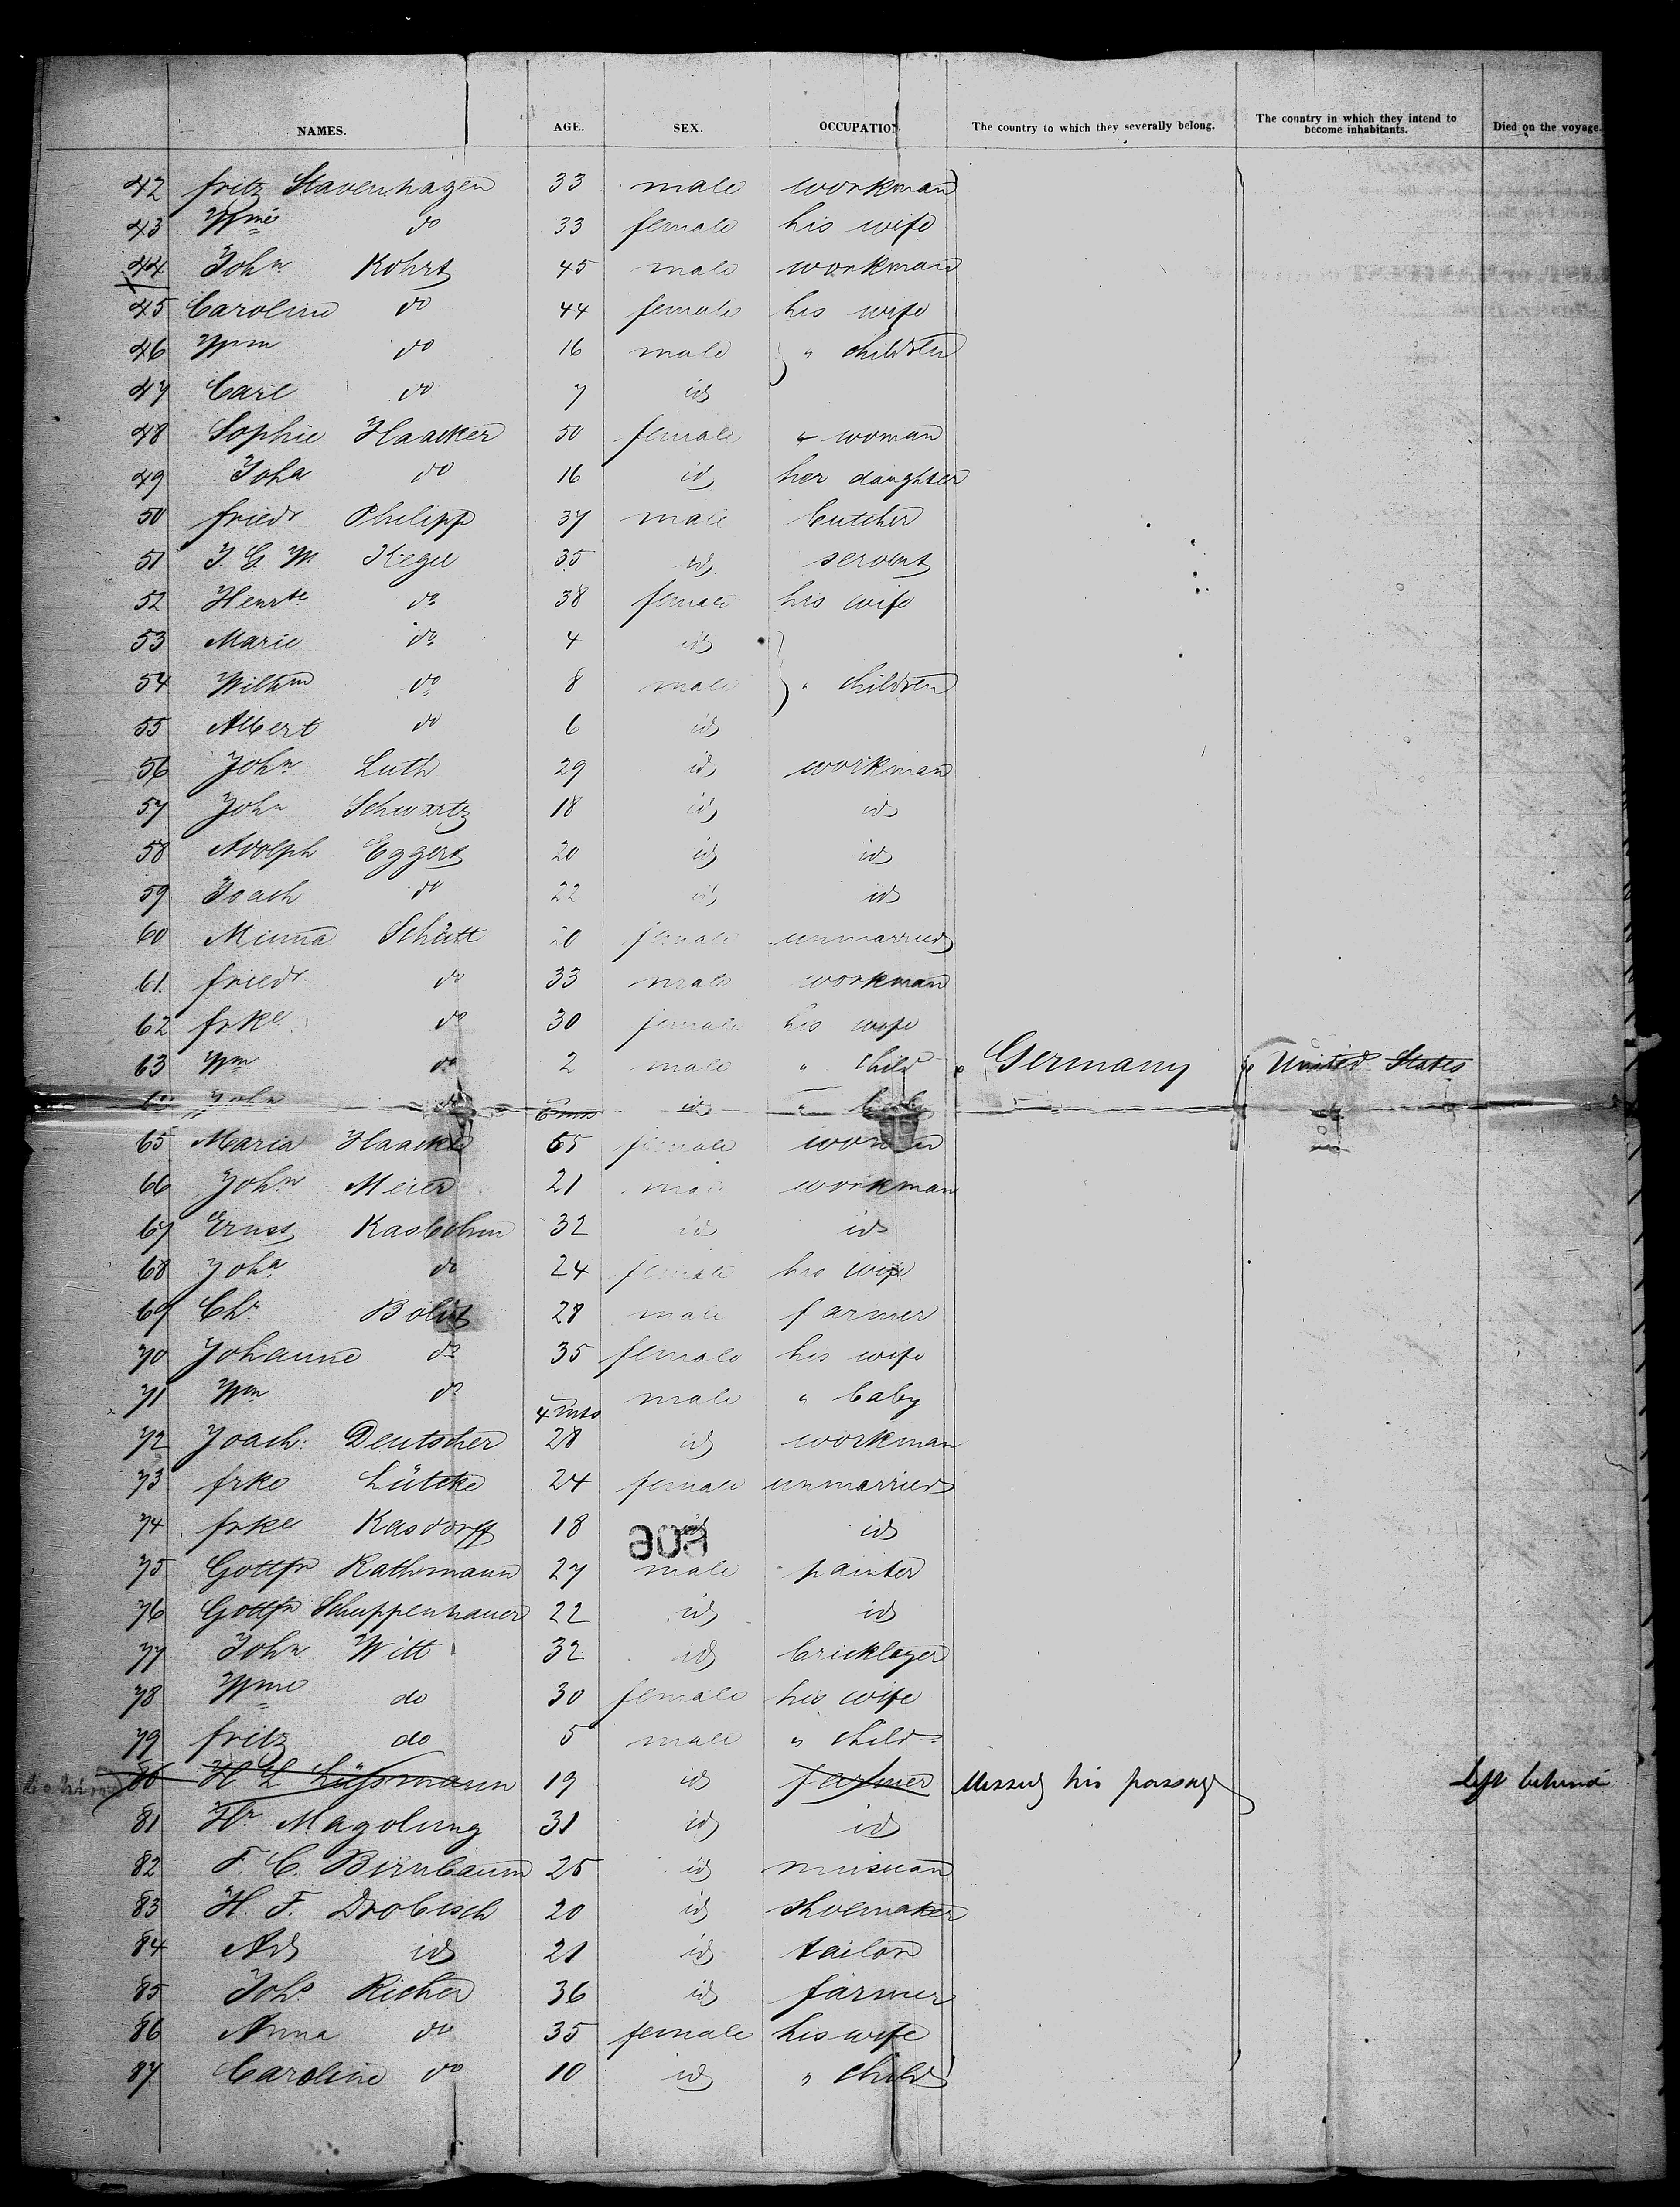 NAMES. AGE. SEX. OCCUPATION. The country to which they severally belong. The country in which they intend to become inhabitants. Died on the voyage.
42 fritz Stavenhagen 33 male workman
43 Wme do 33 female his wife
44 John Kohrt 45 male workman
45 Caroline do 44 female his wife
46 Wm do 16 male " children
47 Carl do 7 id
48 Sophie Haacker 50 female a woman
49 Joha do 16 id her daughter
50 friedr Philipp 37 male butcher
51 J. G. W. Kegel 35 id servant
52 Henrte do 38 female his wife
53 Marie do 4 id
54 Wilhm do 8 male " children
55 Albert do 6 id
56 John Luth 29 id workman
57 John Schwartz 18 id id
58 Adolph Eggert 20 id id
59 Joach do 22 id id
60 Minna Schütt 20 female unmarried
61 friedr do 33 male workman
62 frke do 30 female his wife
63 Wm do 2 male " child Germany United States
John do 6 mts id " baby
65 Maria Haacke 65 female woman
66 John Meier 21 male workman
67 Ernst Kasbohm 32 id id
68 Joha do 24 female his wife
69 Chr. 28 male farmer
70 Johanne do 35 female his wife
71 Wm do 4 mts male " baby
72 Joach: Deutscher 28 id workman
73 frke Lütcke 24 female unmarried
74 frke Kasdorff 18 id id
75 Gottfr Rathmann 27 male painter
76 Gottfr Schuppenhauer 22 id id
77 John Witt 32 id bricklayer
78 Wme do 30 female his wife
79 fritz do 5 male " child
80 H L Lüssmann 19 id farmer Missed his passage left behind
81 Hr. Magolung 31 id id
82 F. C. Birnbaum 25 id musican
83 H. F. Drobisch 20 id shoemaker
84 Ad id 21 id tailor
85 Johs Richer 36 id farmer
86 Anna do 35 female his wife
87 Caroline do 10 id " child